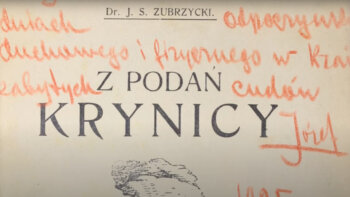 Dr. J. S. ZUBRZYCKI.
dniach odpoczynku
duchowego i fizycznego w
Z PODAŃ
zabytych cudów
KRYNICY
Józef